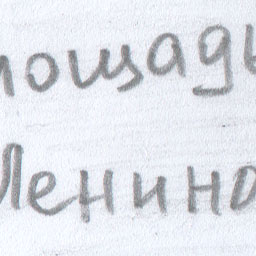 лощадь
Ленина